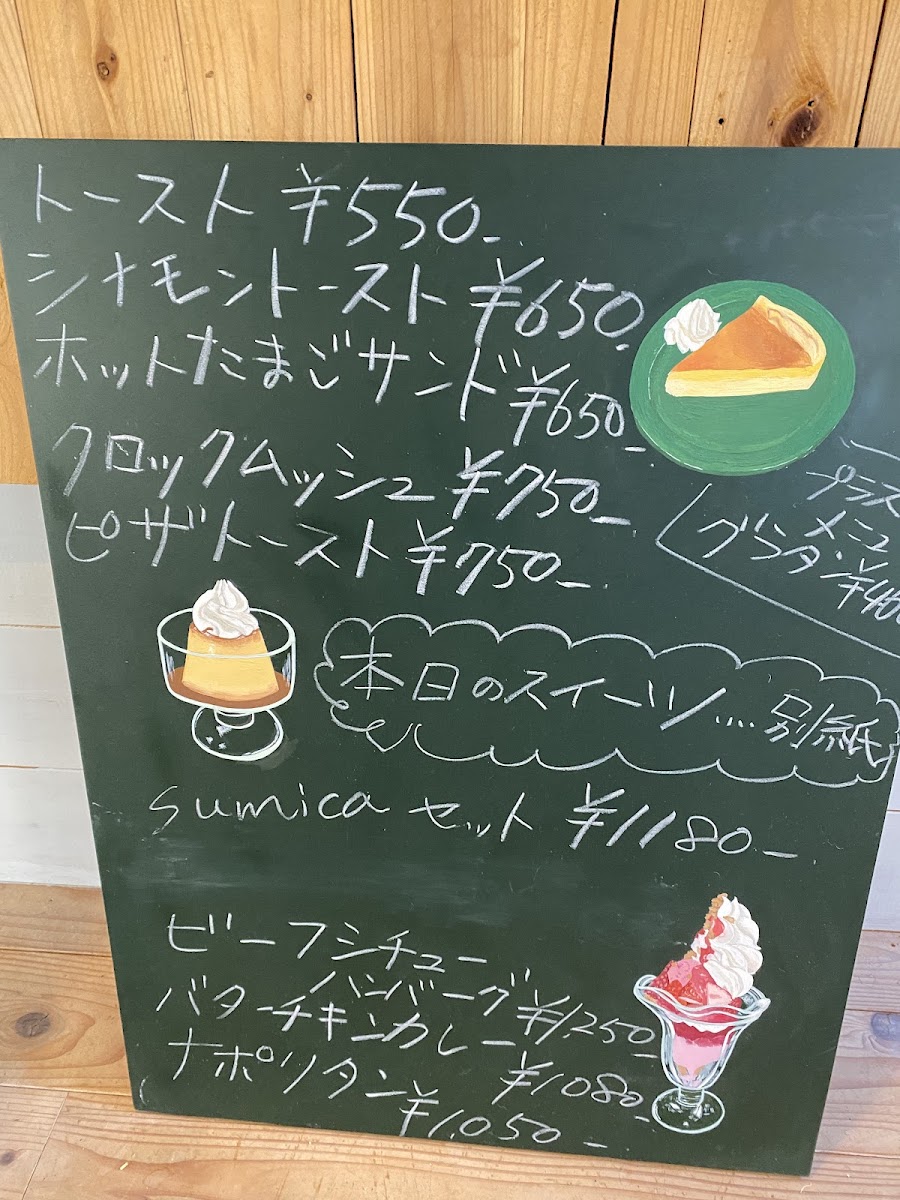 トースト ¥550-
シナモントースト ¥650-
ホットたまごサンド ¥650-
クロックムッシュ ¥750-
ピザトースト ¥750-
プラス
メニュ
グラタン ¥400
本日のスイーツ.... 別紙
sumica セット ¥1180-
ビーフシチュー
ハンバーグ ¥1,250-
バターチキンカレー
¥1080-
ナポリタン
¥1,050-